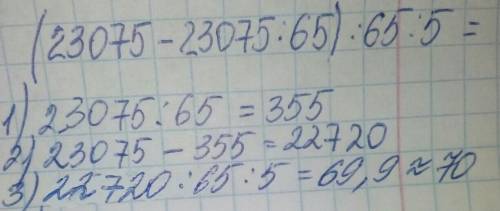 (23075 - 23075 : 65) : 65 : 5 =
1) 23075 : 65 = 355
2) 23075 - 355 = 22720
3) 22720 : 65 : 5 = 69,9 ≈ 70